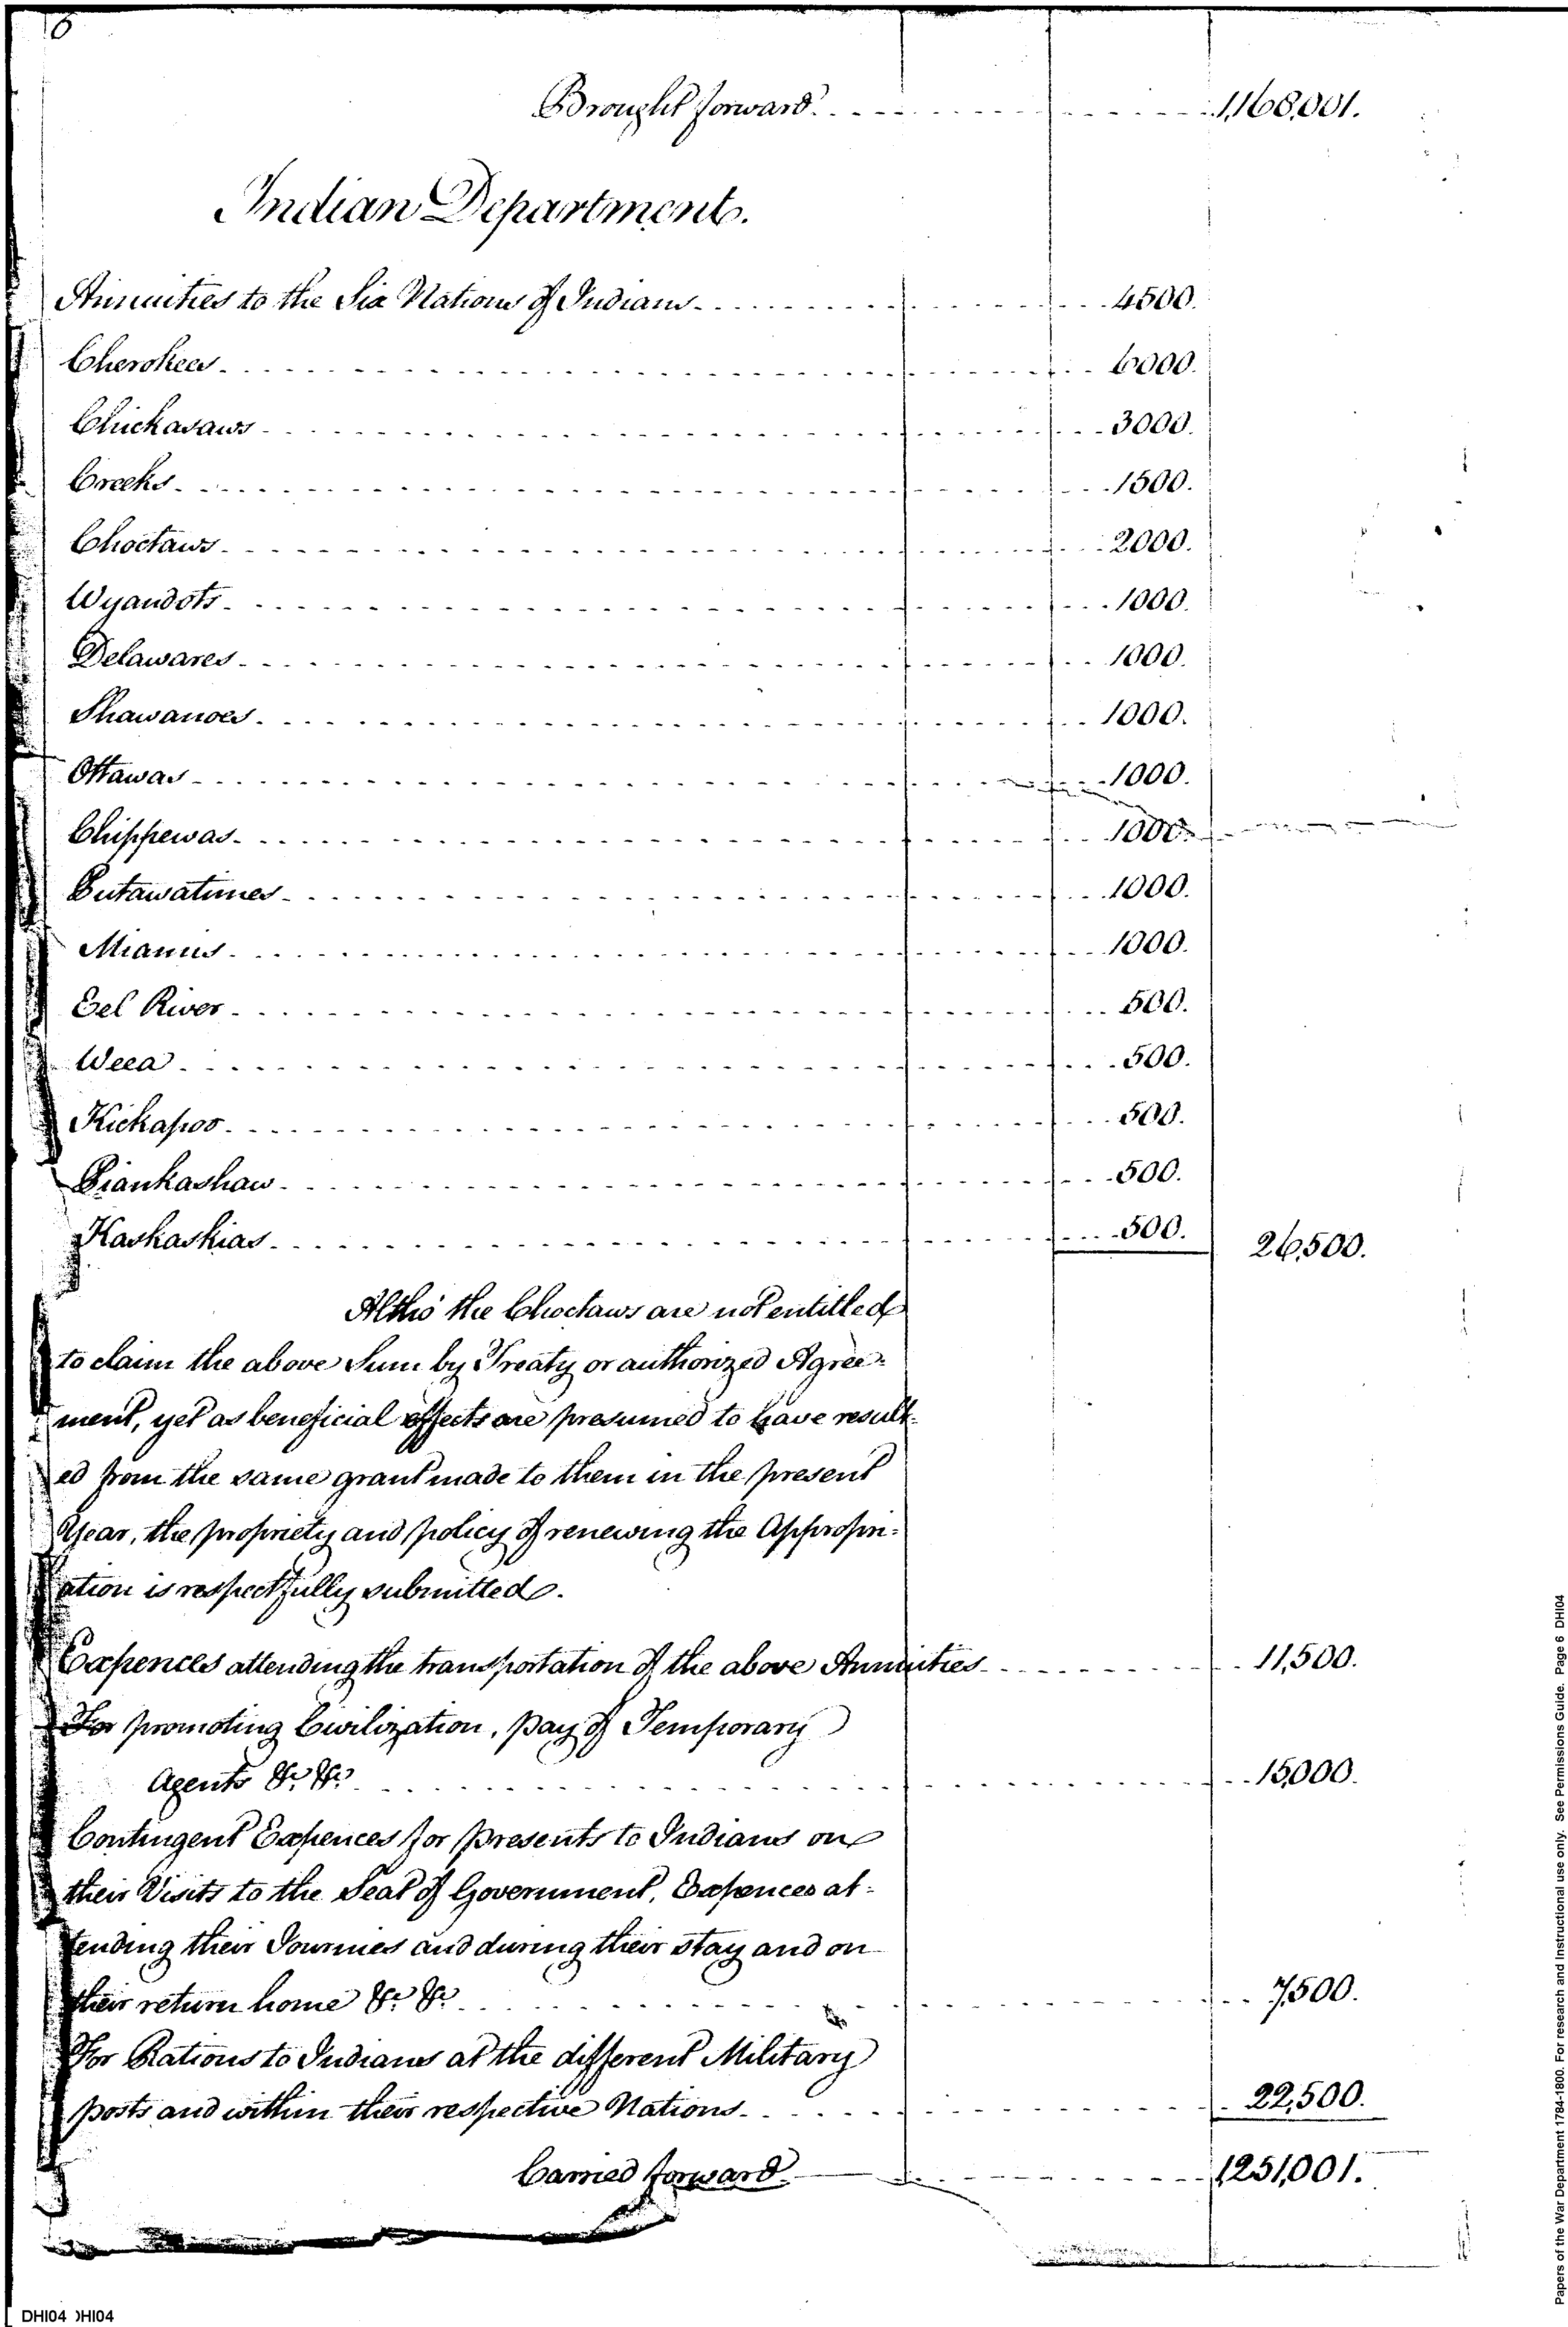 6
Brought forward. 1,168,001.
Indian Department.
Annuities to the Six Nations of Indians 4500.
Cherokees 6000.
Chickasaws 3000.
Creeks 1500.
Choctaws 2000.
Wyandots 1000.
Delawares 1000.
Shawanoes 1000.
Ottawas 1000.
Chippewas 1000.
Putawatimes 1000.
Miamis 1000.
Eel River 500.
Weea 500.
Kickapoo 500.
Piankashaw 500.
Kaskaskias 500. 26,500.
Altho' the Choctaws are not entitled
to claim the above Sum by Treaty or authorized Agree-
ment, yet as beneficial effects are presumed to have result-
ed from the same grant made to them in the present
Year, the propriety and policy of renewing the Appropri-
ation is respectfully submitted.
Expences attending the transportation of the above Annuities 11,500.
For promoting Civilization, pay of Temporary
Agents &c. &c. 15,000.
Contingent Expences for presents to Indians on
their Visits to the Seat of Government, Expences at-
tending their Journies and during their stay and on
their return home &c. &c. 7,500.
For Rations to Indians at the different Military
posts and within their respective Nations 22,500.
Carried forward 1,251,001.
DHI04 )HI04
Papers of the War Department 1784-1800. For research and Instructional use only. See Permissions Guide. Page 6 DHI04